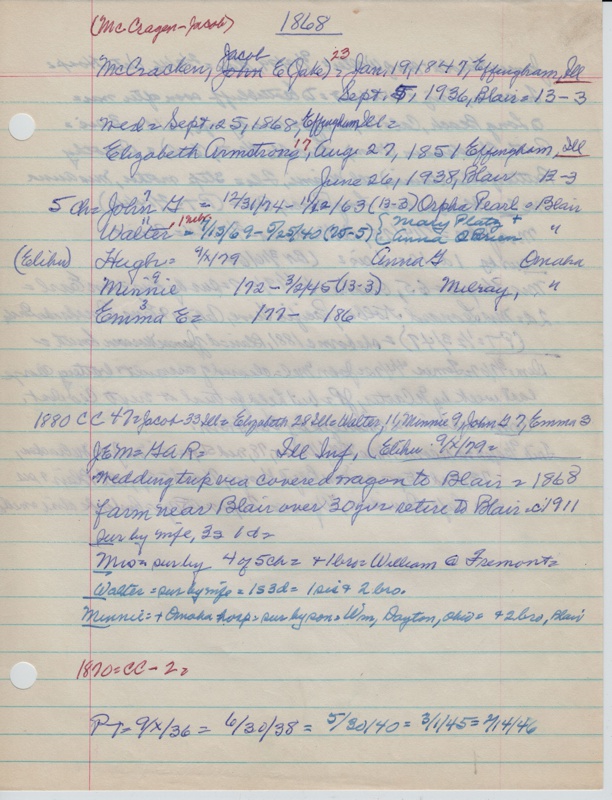 (McCragen - Jacob) 1868
Jacob 23
McCracken, John E (Jake) = Jan, 19, 1847, Effingham, Ill
Sept, 5, 1936, Blair = 13-3
med = Sept, 25, 1868, Effingham Ill =
Elizabeth Armstrong 17, Aug 27, 1851 Effingham, Ill
June 26, 1938, Blair 13-3
5 Ch = John G 7 = 12/31/74 - 11/22/63 (13-3) Orpha Pearl = Blair
Walter 11 = 9/13/69 - 5/25/40 (25-5) { Mary Platz + Anna O'Brien "
(Elihu) Hugh = 9/x/79 Anna G Omaha
Minnie 9 172 - 3/2/45 (13-3) Milroy, "
Emma E 3 = 177 - 186
1880 CC 47 = Jacob 33 Ill = Elizabeth 28 Ill = Walter, 11, Minnie 9, John G 7, Emma 3
JEM = GAR = Ill Inf, (Elihu 9/x/79 =
Wedding trip via covered wagon to Blair = 1868
farm near Blair over 30 yrs = retire to Blair c 1911
sur by wife, 3s 1d =
Mrs = sur by 4 of 5 ch = + 1 bro = William @ Fremont =
Walter = sur by wife = 1s 3d = 1 sis & 2 bro.
Minnie = + Omaha hosp = sur by son = Wm, Dayton, Ohio = + 2 bro, Blair
1870 = CC - 2 =
P-T = 9/x/36 = 6/30/38 = 5/30/40 = 3/1/45 = 2/14/46